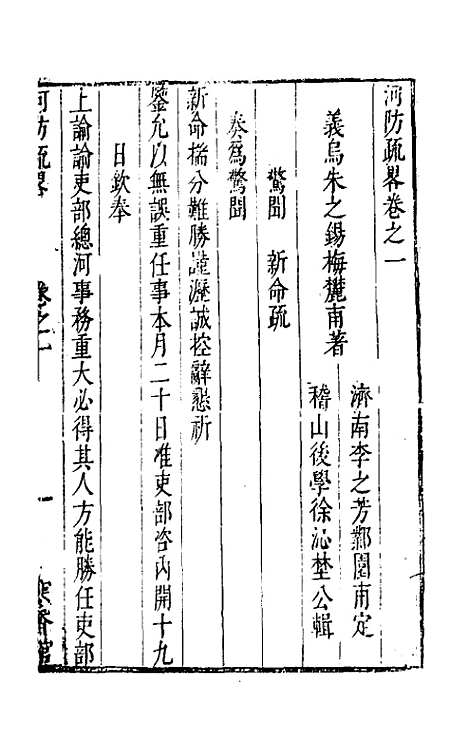 河防疏畧卷之一
義烏朱之錫梅麓甫著
濟南李之芳鄴園甫定
稽山後學徐沁埜公輯
驚聞　新命疏
奏爲驚聞
新命揣分難勝謹瀝誠控辭懇祈
鑒允以無誤重任事本月二十日准吏部咨内開十九
日欽奉
上諭諭吏部總河事務重大必得其人方能勝任吏部
河防疏畧　卷之一　一　寒香館